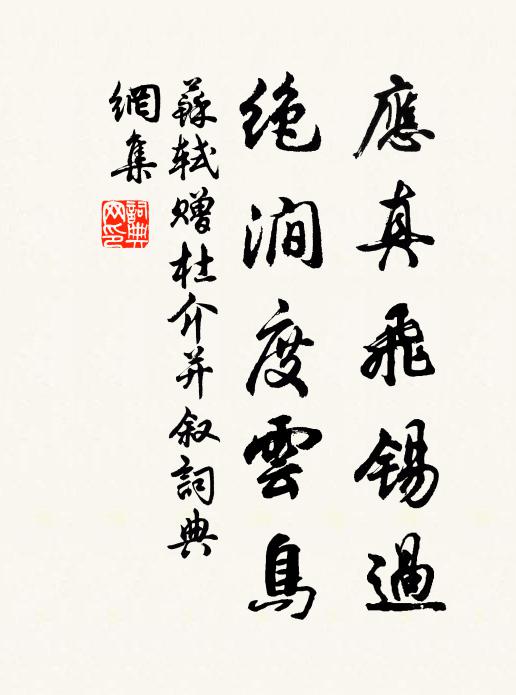 應真飛錫過
絶澗度雲鳥
蘇軾贈杜介并叙詞典
網集
詞典
网印